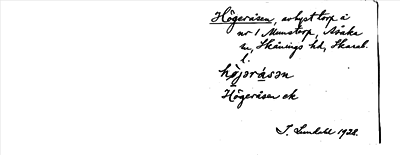 Högeråsen, avbyst torp å
nr 1 Munstorp, Åsaka
sn, Skånings hd, Skarab.
l.
hö̀jəråsən
Högeråsen ek
I. Lundahl 1928.